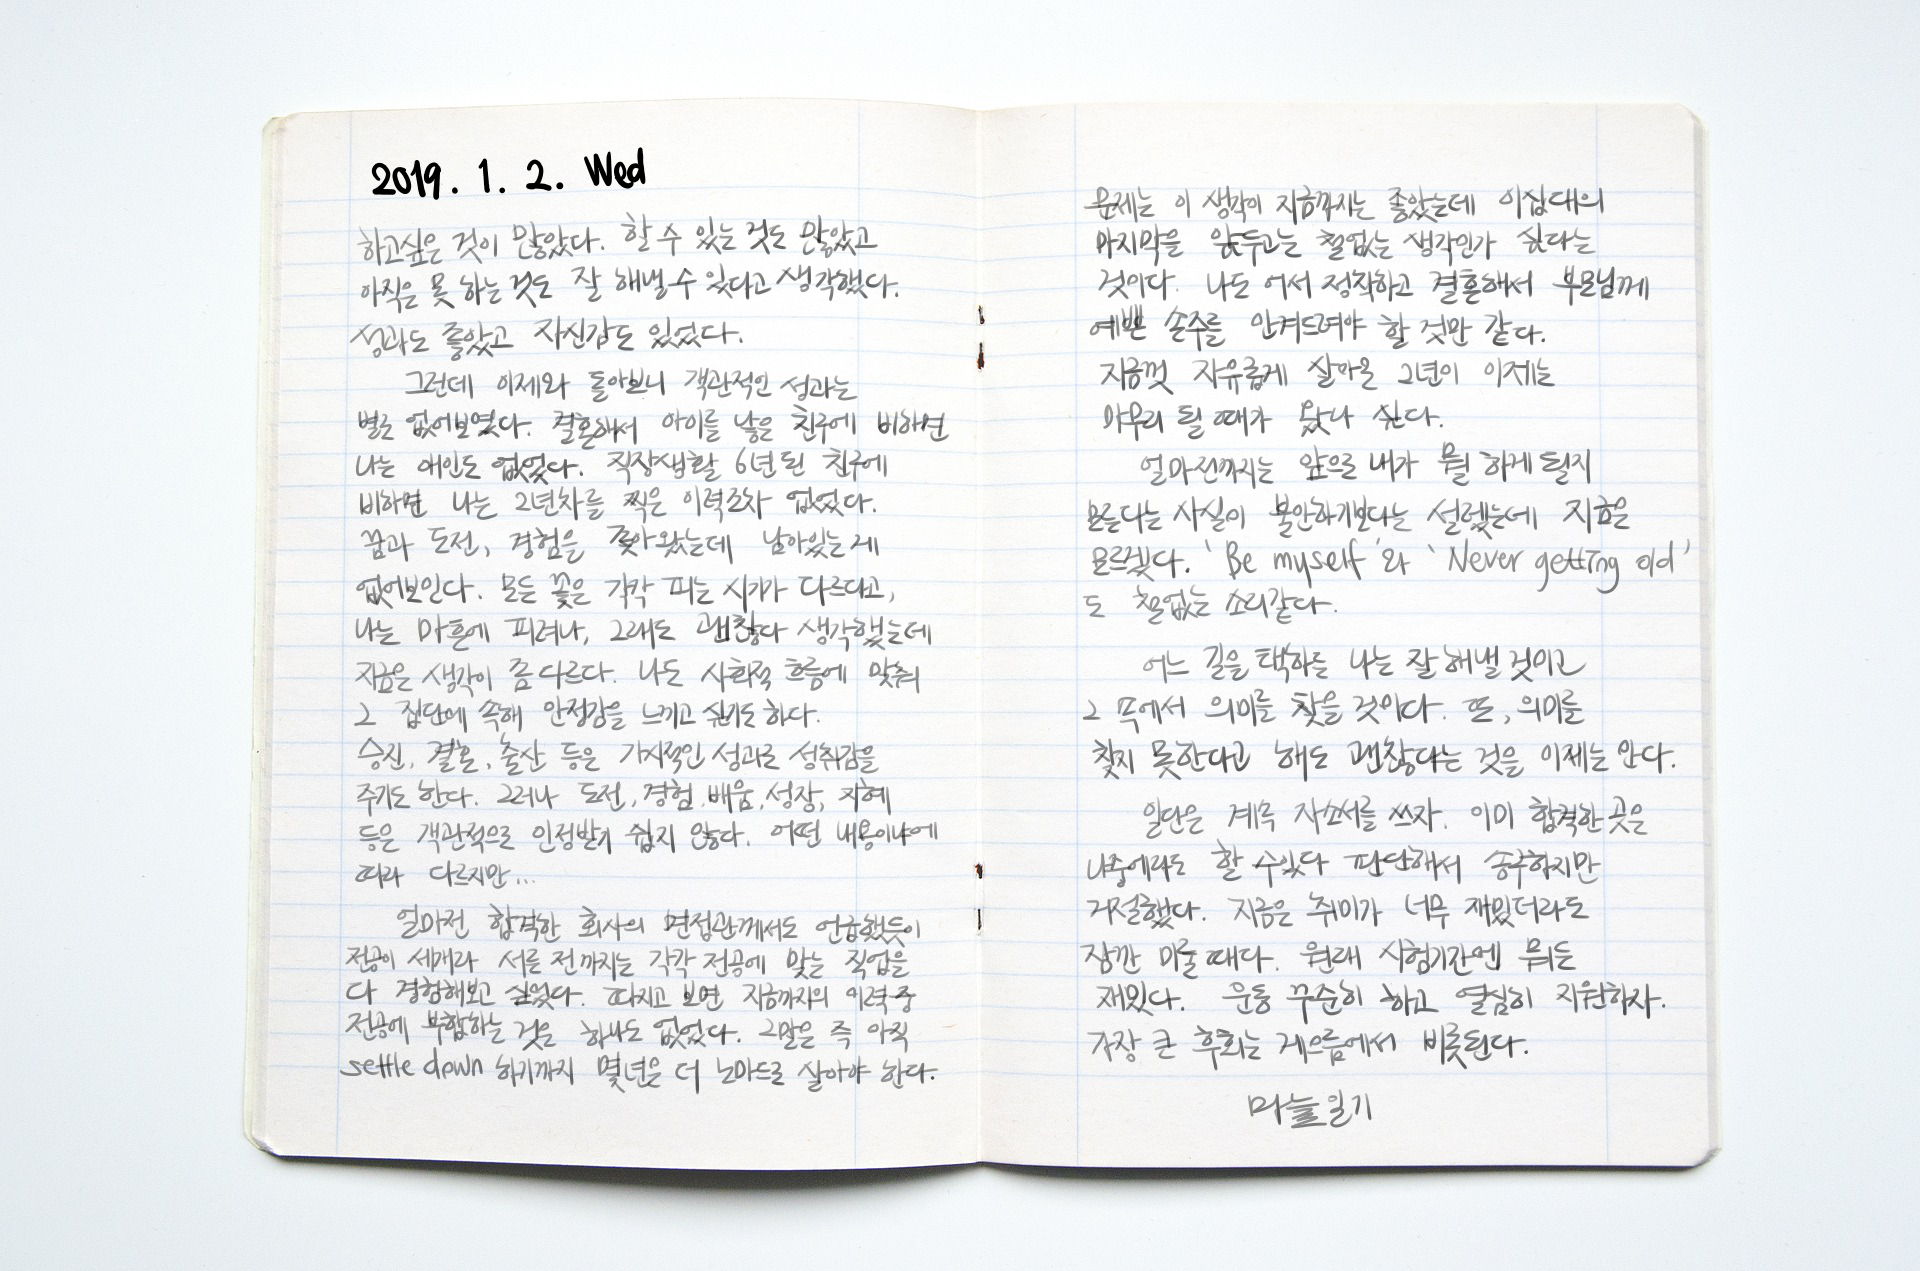 2019. 1. 2. Wed
하고싶은 것이 많았다. 할 수 있는 것도 많았고
아직은 못 하는 것도 잘 해낼 수 있다고 생각했다.
성과도 좋았고 자신감도 있었다.
그런데 이제와 돌아보니 객관적인 성과는
별로 없어보였다. 결혼해서 아이를 낳은 친구에 비하면
나는 애인도 없었다. 직장생활 6년 된 친구에
비하면 나는 2년차를 찍은 이력조차 없었다.
꿈과 도전, 경험을 쫓아왔는데 남아있는 게
없어보인다. 모든 꽃은 각각 피는 시기가 다르다고,
나는 마흔에 피려나, 그래도 괜찮다 생각했는데
지금은 생각이 좀 다르다. 나도 사회적 흐름에 맞춰
그 집단에 속해 안정감을 느끼고 싶기도 하다.
승진, 결혼, 출산 등은 가시적인 성과로 성취감을
주기도 한다. 그러나 도전, 경험, 배움, 성장, 지혜
등은 객관적으로 인정받기 쉽지 않다. 어떤 내용이냐에
따라 다르지만...
얼마전 합격한 회사의 면접관께서도 언급했듯이
전공이 세개라 서른 전까지는 각각 전공에 맞는 직업을
다 경험해보고 싶었다. 따지고 보면 지금까지의 이력 중
전공에 부합하는 것은 하나도 없었다. 그말은 즉 아직
settle down 하기까지 몇년은 더 노마드로 살아야 한다.
문제는 이 생각이 지금까지는 좋았는데 이십대의
마지막을 앞두고는 철없는 생각인가 싶다는
것이다. 나도 어서 정착하고 결혼해서 부모님께
예쁜 손주를 안겨드려야 할 것만 같다.
지금껏 자유롭게 살아온 2년이 이제는
마무리 될 때가 왔나 싶다.
얼마전까지는 앞으로 내가 뭘 하게 될지
모른다는 사실이 불안하기보다는 설렜는데 지금은
모르겠다. 'Be myself'와 'Never getting old'
도 철없는 소리같다.
어느 길을 택하든 나는 잘 해낼 것이고
그 속에서 의미를 찾을 것이다. 또, 의미를
찾지 못한다고 해도 괜찮다는 것을 이제는 안다.
일단은 계속 자소서를 쓰자. 이미 합격한 곳은
나중에라도 할 수있다 판단해서 송구하지만
거절했다. 지금은 취미가 너무 재밌더라도
잠깐 미룰 때다. 원래 시험기간엔 뭐든
재밌다. 운동 꾸준히 하고 열심히 지원하자.
가장 큰 후회는 게으름에서 비롯된다.
마늘일기